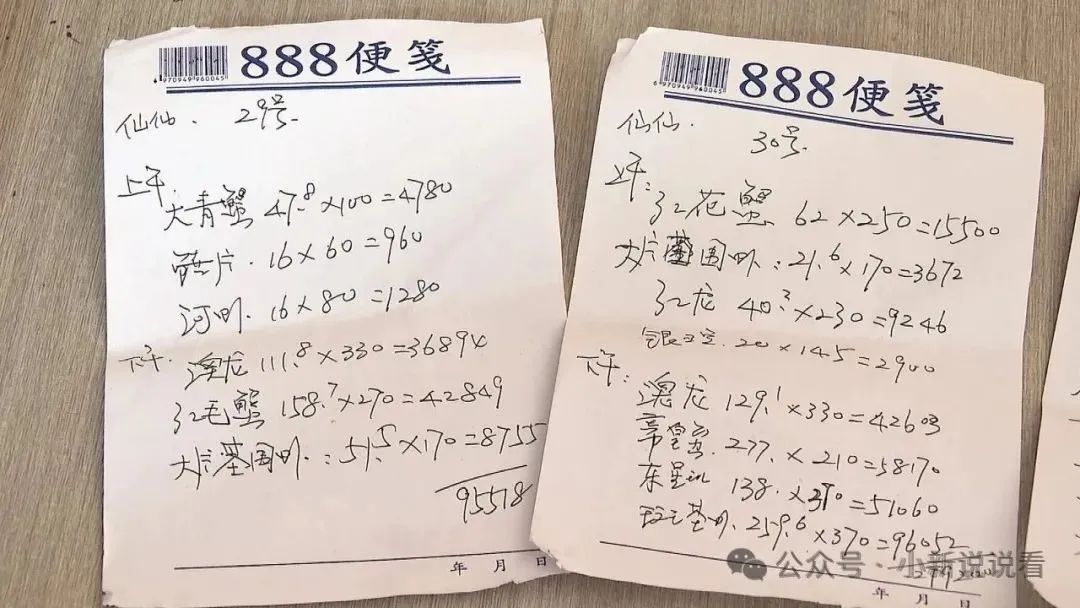 6970949960045
888便笺
仙仙. 29号.
上午.
大青蟹 47.8×100=4780
片. 16×60=960
河虾. 16×80=1280
下午.
澳龙 111.8×330=36894
红毛蟹 158.7×270=42849
大片基围虾:51.5×170=8755
95518
年 月 日
6970949960045
888便笺
仙仙. 30号.
上午:
红花蟹 62×250=15500
大片基围虾:21.6×170=3672
红龙 40.2×230=9246
20×145=2900
下午:
澳龙 129.1×330=42603
帝皇蟹. 277.×210=58170
东星 138.×370=51060
基虾. 259.6×370=96052
年 月 日
公众号·小新说说看